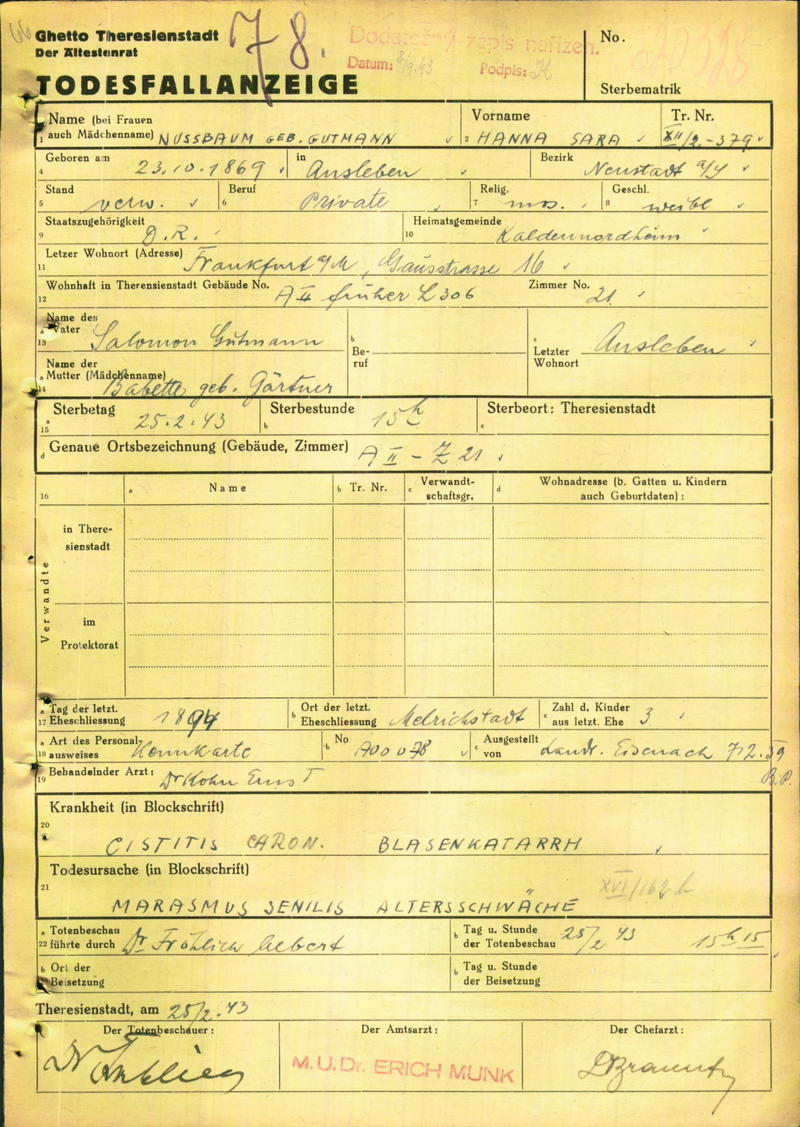 Ghetto Theresienstadt
Der Ältestenrat
TODESFALLANZEIGE
78.
Dodatečný zápis nařízen.
Datum: 8/9.43 Podpis:
No.
Sterbematrik
Name (bei Frauen
1 auch Mädchenname) NUSSBAUM GEB. GUTMANN
Vorname
2 HANNA SARA
Tr. Nr.
XII/2-379
Geboren am
4 23.10.1869
in
Ausleben
Bezirk
Neustadt a/S
Stand
5 verw.
Beruf
6 Private
Relig.
7 mos.
Geschl.
8 weibl
Staatszugehörigkeit
9 D.R.
Heimatsgemeinde
10 Kaldennordheim
Letzer Wohnort (Adresse)
11 Frankfurt a/M, Gausstrasse 16
Wohnhaft in Theresienstadt Gebäude No.
12 A II früher L 306
Zimmer No.
21
Name des
a Vater
13 Salomon Gutmann
b
Be-
ruf
c
Letzter
Wohnort
Ausleben
Name der
a Mutter (Mädchenname)
14 Babette geb. Gärtner
Sterbetag
a
15 25.2.43
Sterbestunde
b 15h
Sterbeort: Theresienstadt
c
Genaue Ortsbezeichnung (Gebäude, Zimmer)
d A II - Z 21
16
a Name
b Tr. Nr.
c Verwandt-
schaftsgr.
d Wohnadresse (b. Gatten u. Kindern
auch Geburtdaten):
Verwandte
in There-
sienstadt
im
Protektorat
a Tag der letzt.
17 Eheschliessung 1894
b Ort der letzt.
Eheschliessung Melrichstadt
c Zahl d. Kinder
aus letzt. Ehe 3
a Art des Personal-
18 ausweises Kennkarte
b No
A00078
c Ausgestellt
von Landr. Eisenach 7.2.39
B.P.
19 Behandelnder Arzt: Dr Kohn Ernst
Krankheit (in Blockschrift)
20
a CISTITIS CARON. BLASENKATARRH
Todesursache (in Blockschrift)
21
MARASMUS SENILIS ALTERSSCHWÄCHE
XVI/162b
a Totenbeschau
22 führte durch Dr Fröhlich
b Tag u. Stunde
der Totenbeschau 25/2 43 15h15
b Ort der
Beisetzung
b Tag u. Stunde
der Beisetzung
Theresienstadt, am 25/2.43
Der Totenbeschauer:
Der Amtsarzt:
M.U.Dr. ERICH MUNK
Der Chefarzt: